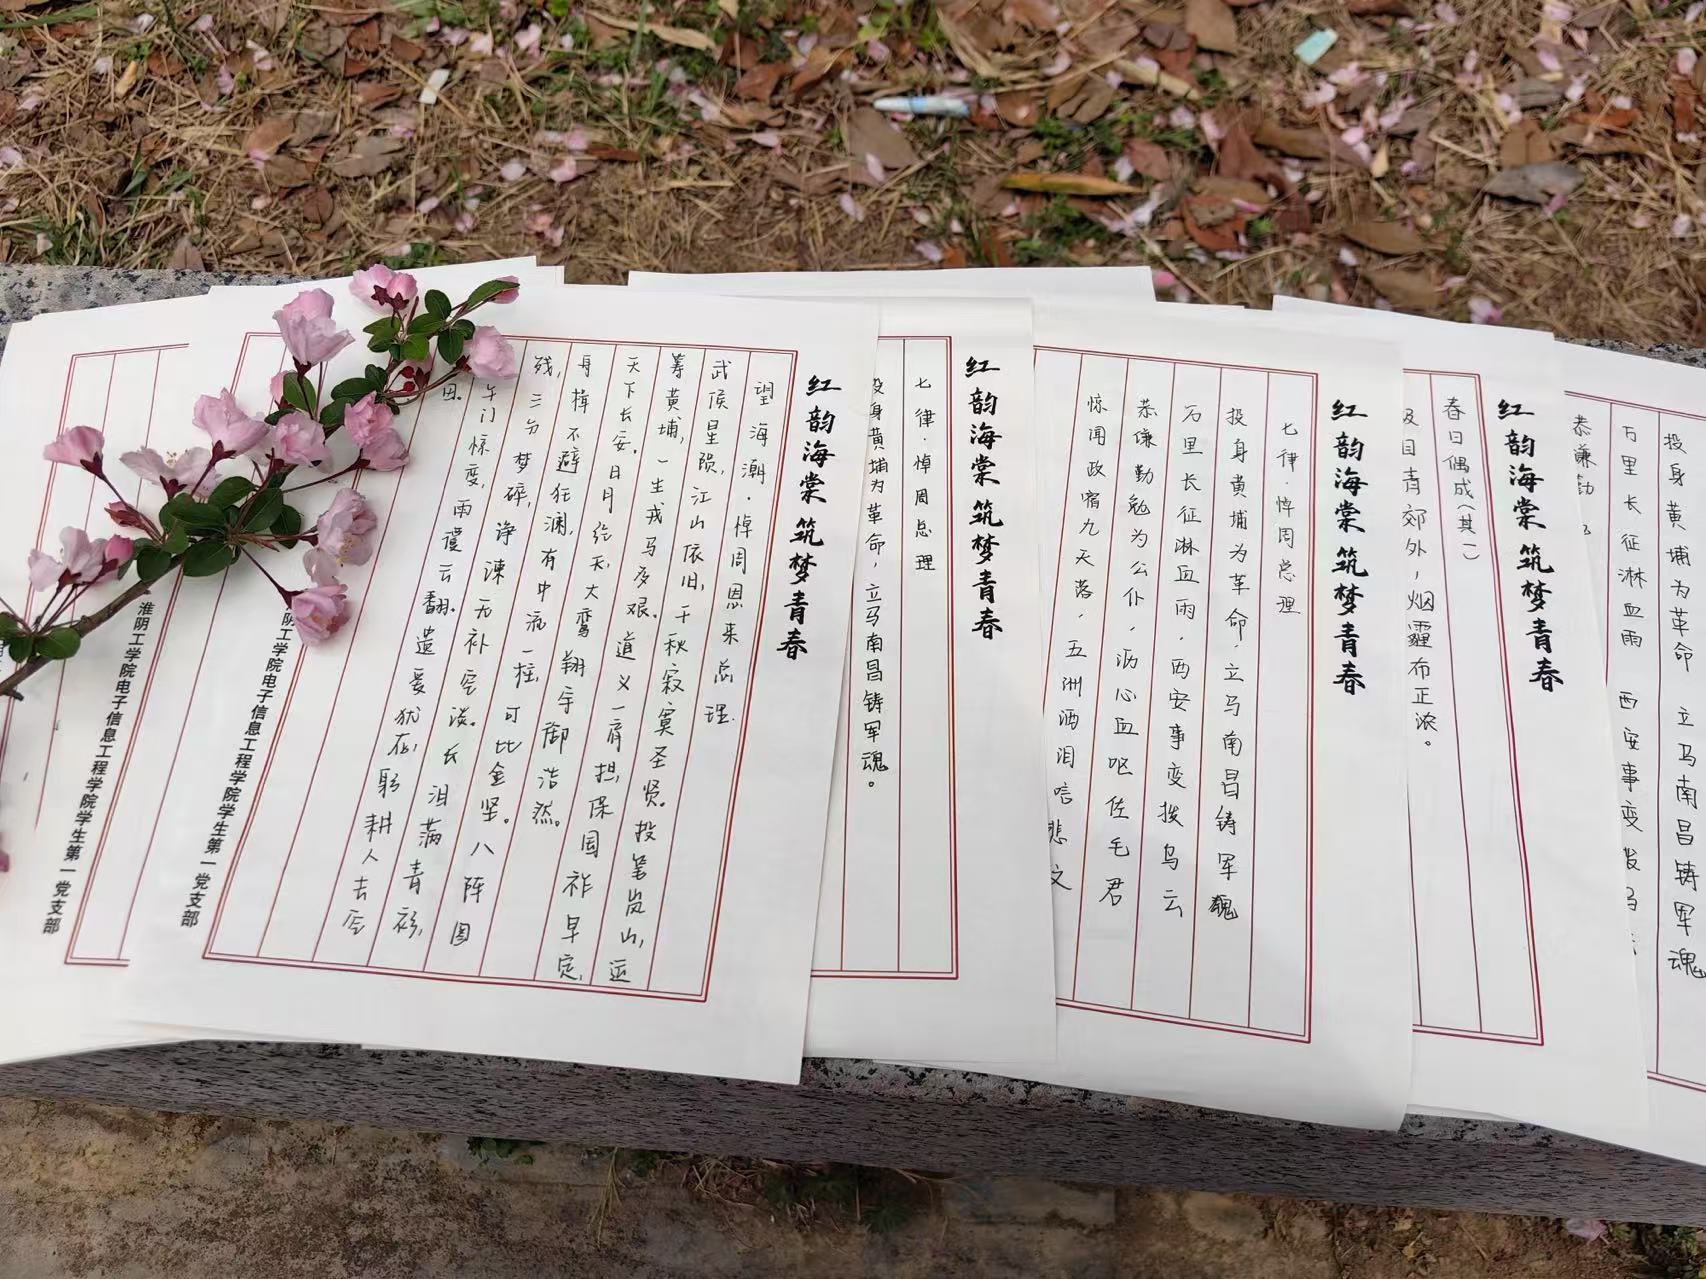 红韵海棠 筑梦青春
望海潮·悼周恩来总理.
武侯星陨，江山依旧，千秋寂寞圣贤。投笔岚山，运
筹黄埔，一生戎马多艰。道义一肩担，保国祚早定，
天下长安。日月经天，大鸾翔宇御浩然。
舟楫不避狂澜，有中流一柱，可比金坚。八阵图
残，三分梦碎，诤谏无补空谈。长泪满青衫，
午门惊变，雨覆云翻。遗爱犹在，躬耕人去空
阴工学院电子信息工程学院学生第一党支部
淮阴工学院电子信息工程学院学生第一党支部
红韵海棠 筑梦青春
七律·悼周总理
投身黄埔为革命，立马南昌铸军魂。
红韵海棠 筑梦青春
七律·悼周总理
投身黄埔为革命，立马南昌铸军魂
万里长征淋血雨，西安事变拨乌云
恭谦勤勉为公仆，沥心血呕佐毛君
惊闻政宿九天落，五洲洒泪唁悲文
红韵海棠 筑梦青春
春日偶成（其一）
极目青郊外，烟霾布正浓。
投身黄埔为革命 立马南昌铸军魂
万里长征淋血雨 西安事变拨乌
恭谦勤